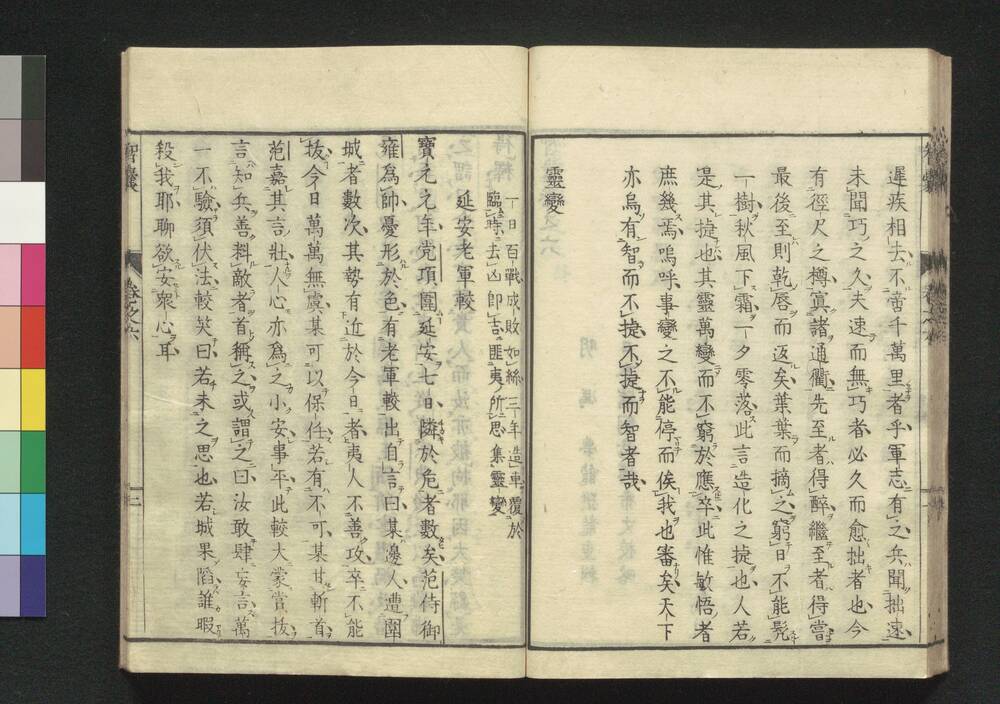 遲疾相去不啻千萬里者乎軍志有之兵聞拙速
未聞巧之久夫速而無巧者必久而愈拙者也今
有徑尺之樽寘諸通衢先至者得醉繼至者得嘗
最後至則乾唇而返矣葉葉而摘之窮日不能髡
一樹秋風下霜一夕零落此言造化之捷也人若
是其捷也其靈萬變而不窮於應卒此惟敏悟者
庶幾焉嗚呼事變之不能停而俟我也審矣天下
亦烏有智而不捷不捷而智者哉
靈變
一日百戰成敗如絲三年造車覆於
臨時去凶即吉匪夷所思集靈變
延安老軍較
寶元元年党項圍延安七日隣於危者數矣范侍御
雍為帥憂形於色有老軍較出自言曰某邊人遭圍
城者數次其勢有近於今日者夷人不善攻卒不能
拔今日萬萬無虞某可以保任若有不可某甘斬首
范嘉其言壯人心亦為之小安事平此較大蒙賞拔
言知兵善料敵者首稱之或謂之曰汝敢肆妄言萬
一不驗須伏法較笑曰若未之思也若城果陷誰暇
殺我耶聊欲安衆心耳
智囊
卷之六
三